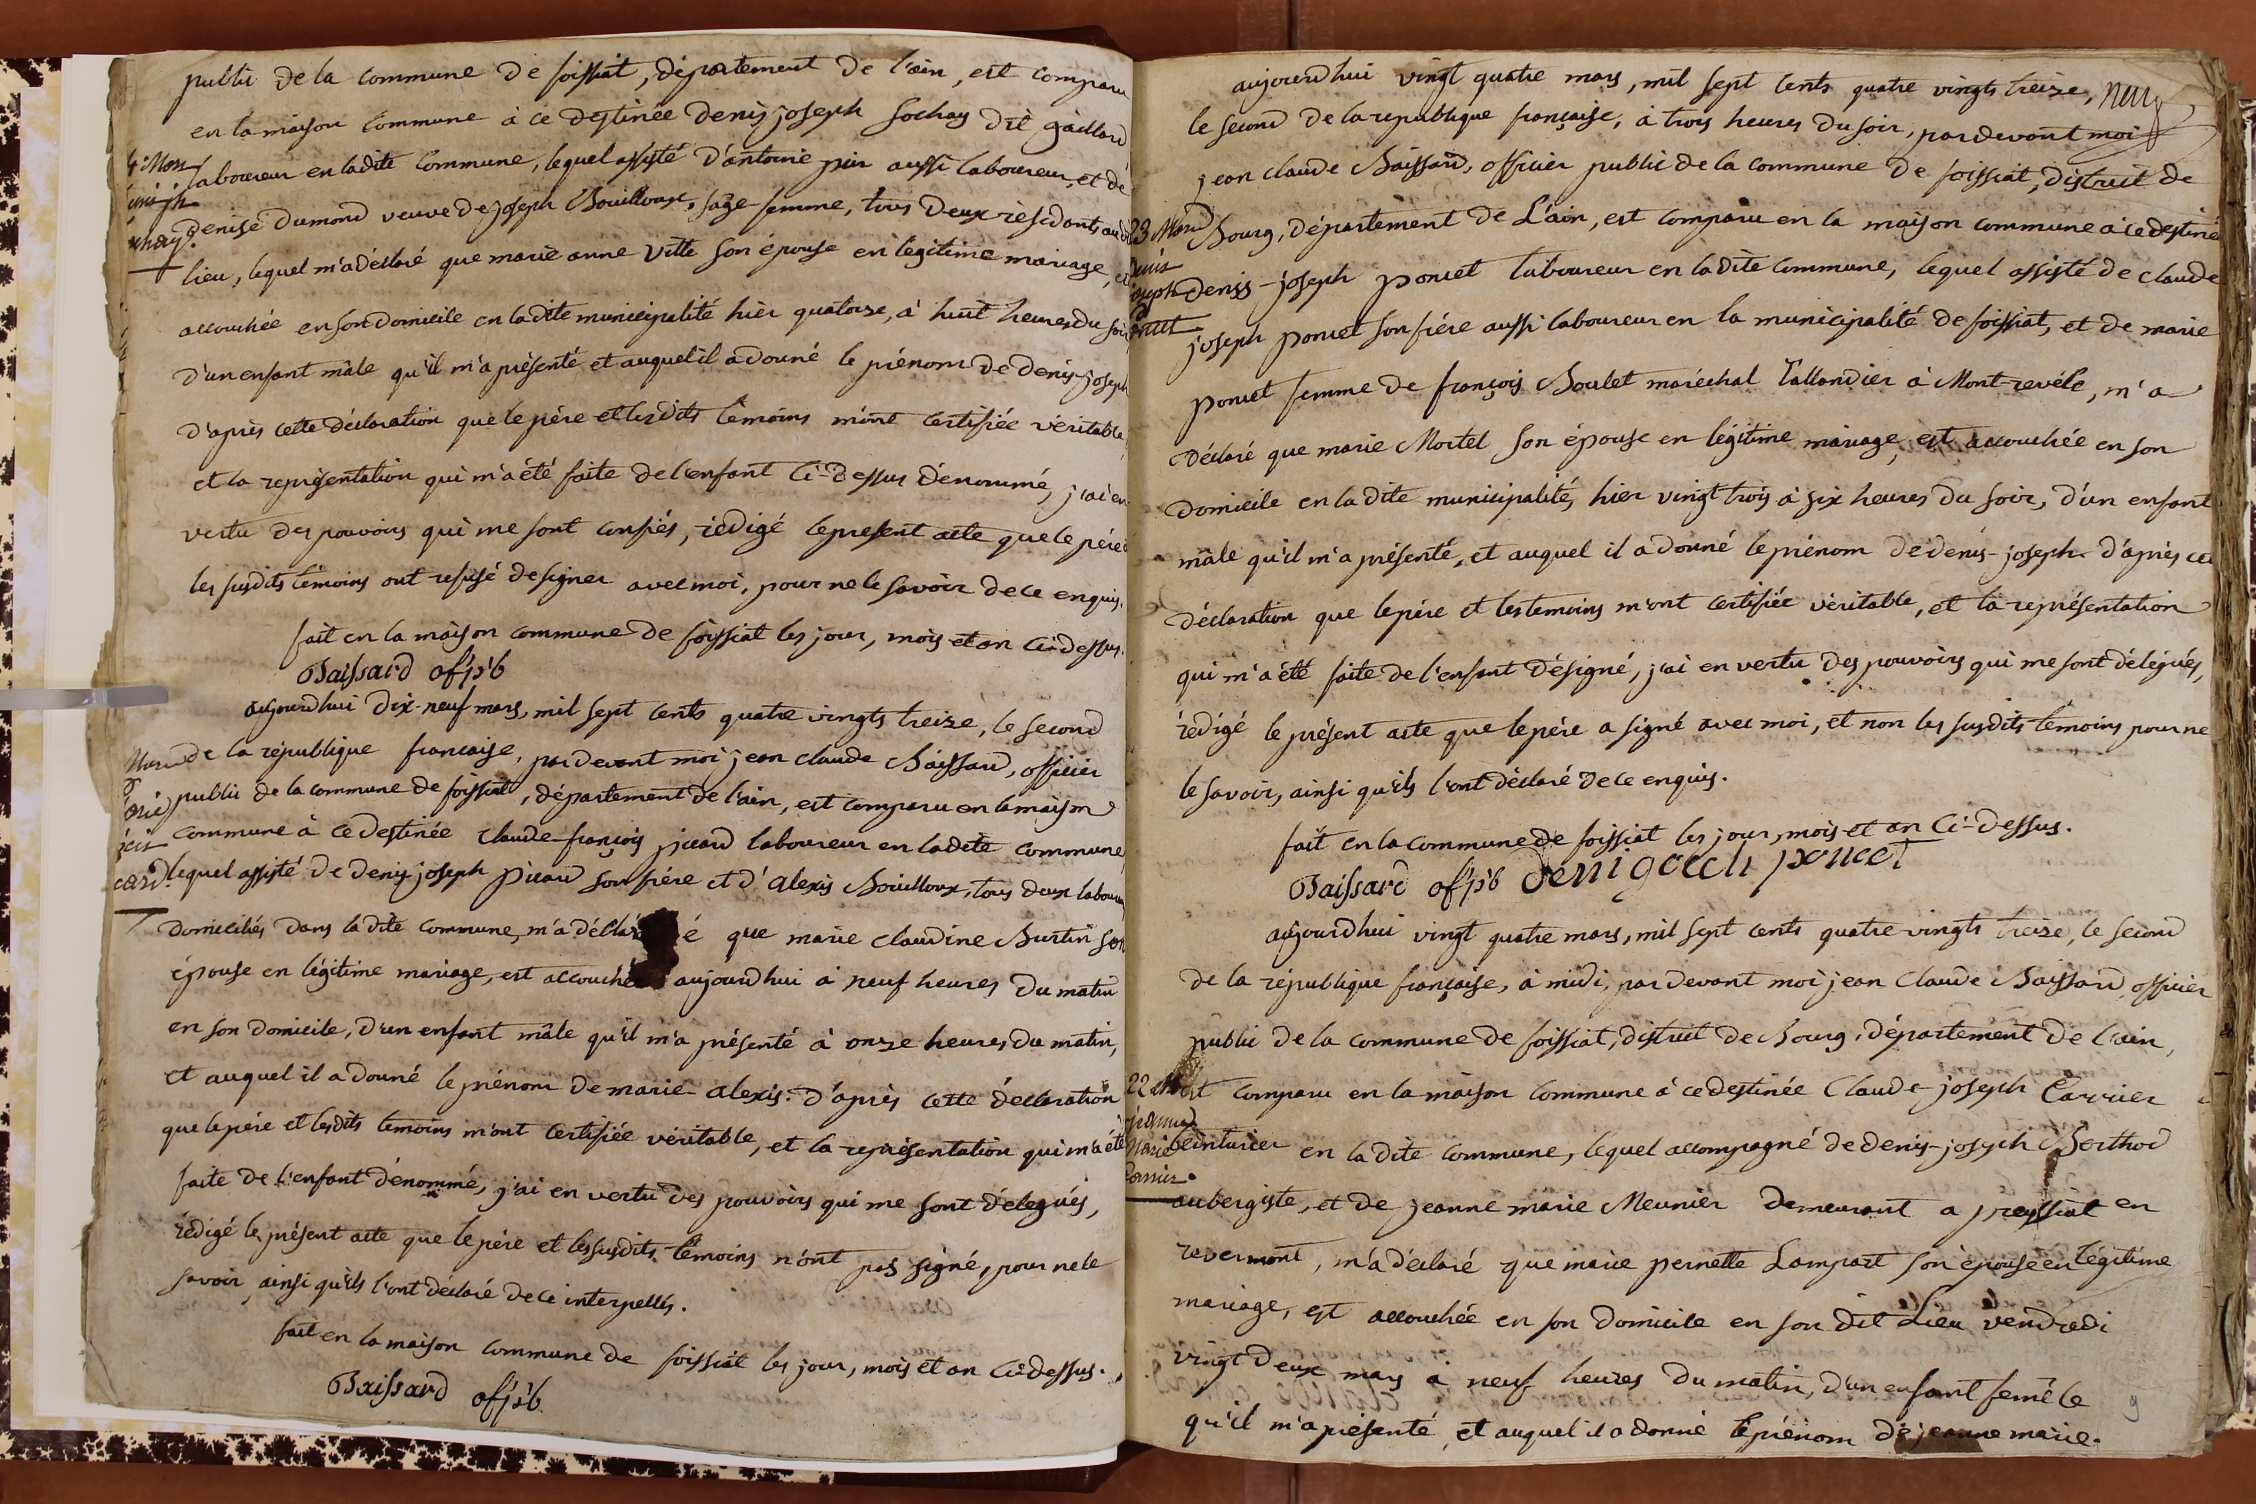 public de la commune de foissiat, département de l'ain, est comparu
en la maison commune à ce destinée denis joseph sochay dit gaillard
laboureur en ladite commune, lequel assisté d'antoine pin aussi laboureur, et de
denise dumond veuve de joseph Bouilloux, sage-femme, tous deux résidants audit
lieu, lequel m'a déclaré que marie anne Vitte son épouse en légitime mariage, est
accouchée en son domicile en ladite municipalité hier quatorze, à huit heures du soir
d'un enfant mâle qu'il m'a présenté et auquel il a donné le prénom de denis-joseph
d'après cette déclaration que le père et lesdits témoins m'ont certifiée véritable,
et la représentation qui m'a été faite de l'enfant ci-dessus dénommé, j'ai en
vertu des pouvoirs qui me sont confiés, rédigé le present acte que le père et
les susdits témoins ont refusé de signer avec moi, pour ne le savoir de ce enquis.
fait en la maison commune de foissiat les jour, mois et an ci-dessus.
Baissard of. p.b
aujourdhui dix-neuf mars, mil sept cents quatre vingts treize, le second
de la république francaise, pardevant moi jean claude Baissard, officier
public de la commune de foissiat, département de l'ain, est comparu en la maison
commune à ce destinée claude-françois picard laboureur en ladite commune
lequel assisté de denis joseph picard son frére et d'alexis Bouilloux, tous deux laboureurs
domiciliés dans ladite commune, m'a déclaré que marie claudine Burtin son
épouse en légitime mariage, est accouchée aujourdhui à neuf heures du matin
en son domicile, d'un enfant mâle qu'il m'a présenté à onze heures du matin,
et auquel il a donné le prénom de marie-alexis. d'après cette déclaration
que le père et lesdits temoins m'ont certifiée véritable, et la représentation qui m'a été
faite de l'enfant dénommé, j'ai en vertu des pouvoirs qui me sont délegués,
rédigé le présent acte que le père et les susdits témoins n'ont pas signé, pour ne le
savoir, ainsi qu'ils l'ont déclaré de ce interpellés.
fait en la maison commune de foissiat les jour, mois et an ci-dessus.
Baissard of. p.b
aujourdhui vingt quatre mars, mil sept cents quatre vingts treize, neuf
le second de la republique française, à trois heures du soir, pardevant moi
jean claude Baissard, officier public de la commune de foissiat, district de
23 Mars
Bourg, département de L'ain, est comparu en la maison commune à ce destinée
denis
joseph
poncet
deniss-joseph poncet laboureur en ladite commune, lequel assisté de claude
joseph poncet son frére aussi laboureur en la municipalité de foissiat, et de marie
poncet femme de françois Boulet maréchal Tallandier à Mont-revéle, m'a
déclaré que marie Mortel son épouse en légitime mariage, est accouchée en son
domicile en ladite municipalité, hier vingt trois à six heures du soir, d'un enfant
mâle qu'il m'a présenté, et auquel il a donné le prénom de denis-joseph. d'après ce
déclaration que le père et les temoins m'ont certifiée véritable, et la représentation
qui m'a été faite de l'enfant désigné, j'ai en vertu des pouvoirs qui me sont délégués,
rédigé le présent acte que le père a signé avec moi, et non les susdits témoins pour ne
le savoir, ainsi qu'ils l'ont déclaré de ce enquis.
fait en la commune de foissiat les jour, mois et an ci-dessus.
Baissard of. p.b poncet
aujourdhui vingt quatre mars, mil sept cents quatre vingts treize, le second
de la république française, à midi, pardevant moi jean claude Baissard officier
public de la commune de foissiat, district de Bourg, département de l'ain,
22
est comparu en la maison commune à ce destinée Claude-joseph Carrier
jeanne
Marie
Carrier
teinturier en ladite commune, lequel accompagné de denis-joseph Berthod
aubergiste, et de jeanne marie Meunier demeurant a pressiat en
revermont, m'a déclaré que marie pernette Lampart son épouse en légitime
mariage, est accouchée en son domicile en son dit Lieu vendredi
vingt deux mars à neuf heures du matin, d'un enfant femêle
qu'il m'a présenté, et auquel il a donné le prénom de jeanne marie.
9